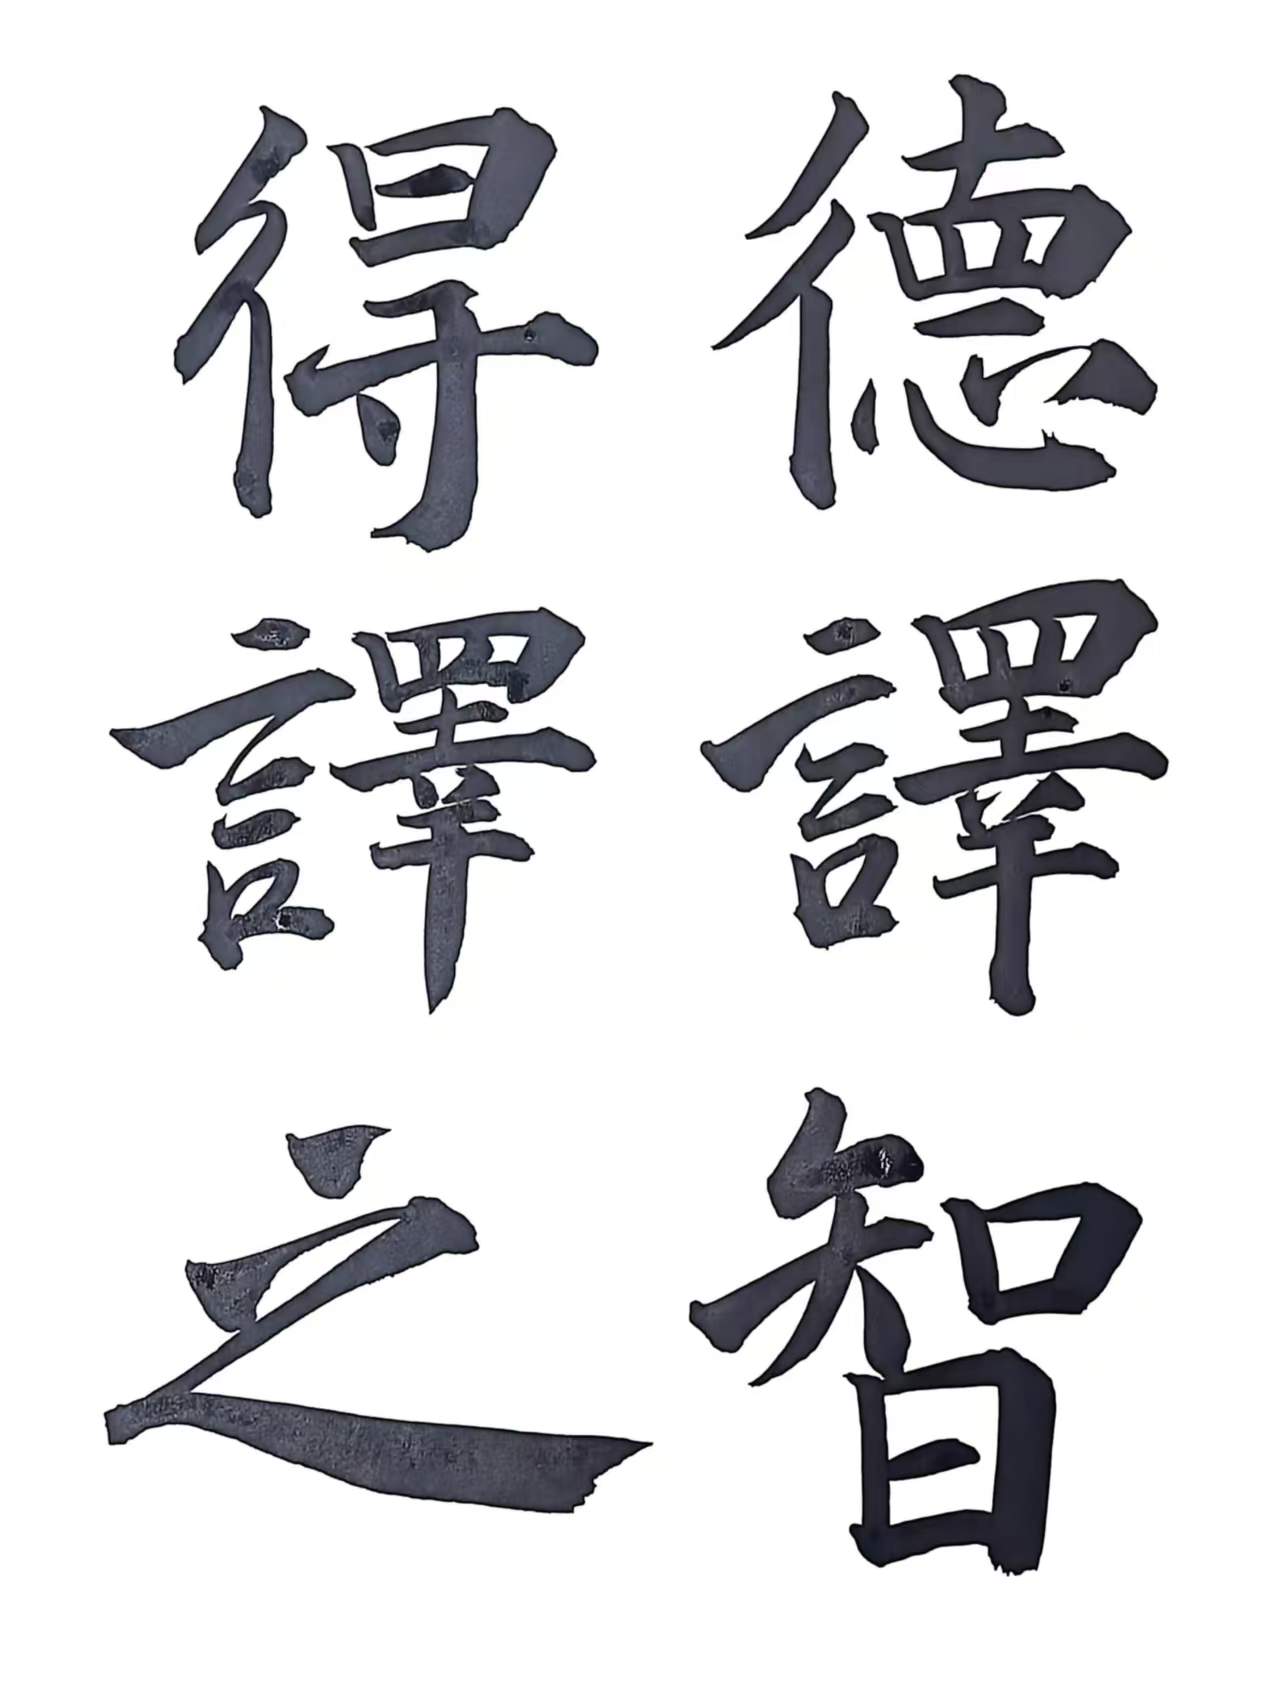 德譯智
得譯之